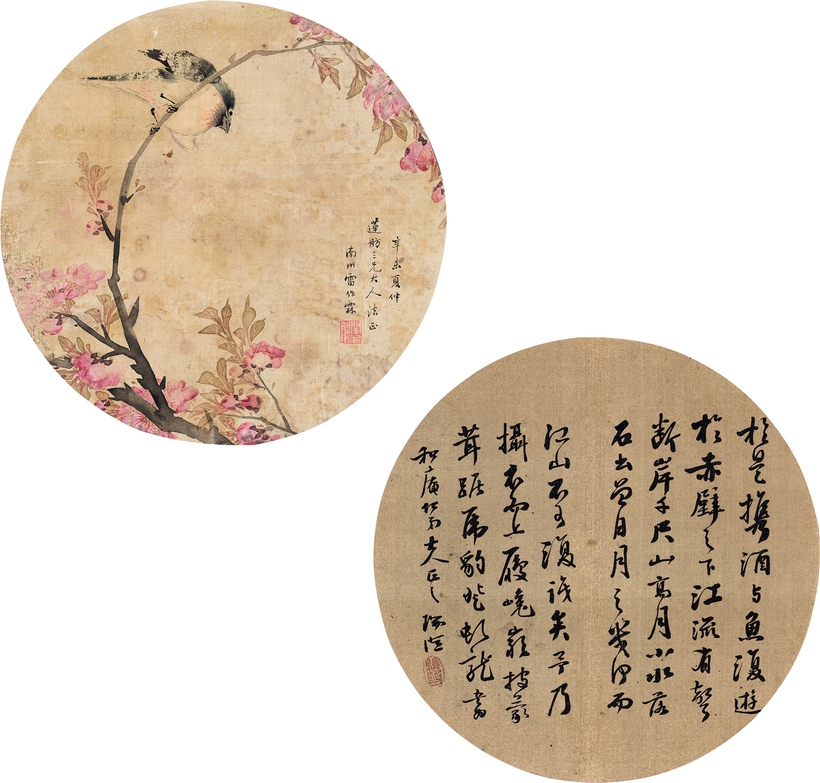 辛未夏仲
蓮舫三兄大人法正
南州雷作霖
於是攜酒与魚復遊
於赤壁之下江流有聲
斷岸千尺山高月小水落
石出曽日月之幾何而
江山不可復識矣予乃
攝衣而上履巉巖披蒙
茸踞虎豹登虬龍書
和庵 大人正之